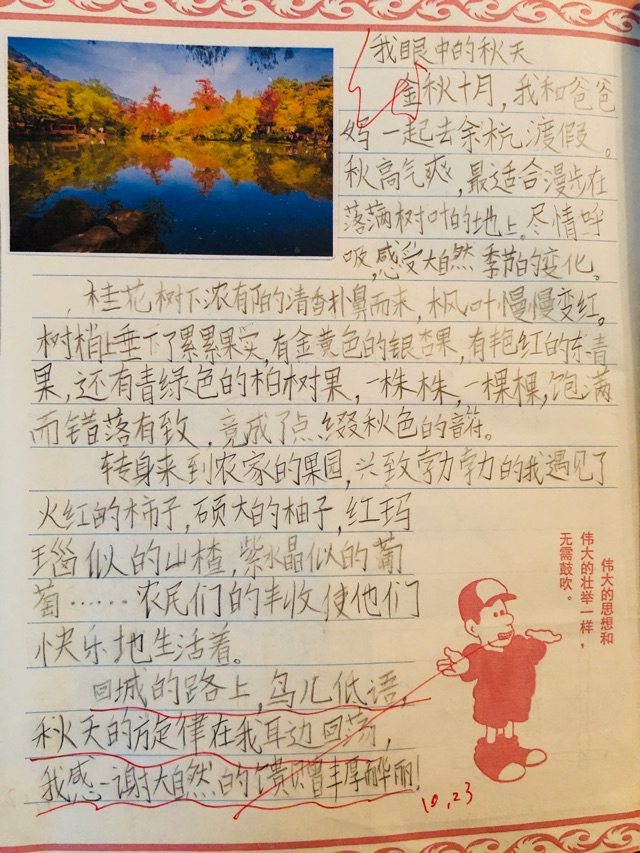 我眼中的秋天
金秋十月，我和爸爸
妈一起去余杭渡假。
秋高气爽，最适合漫步在
落满树叶的地上。尽情呼
吸，感受大自然季节的变化。
桂花树下浓有的清香扑鼻而来，枫叶慢慢变红。
树梢上垂下了累累果实，有金黄色的银杏果，有艳红的冬青
果，还有青绿色的柏树果，一株株，一棵棵，饱满
而错落有致，竟成了点缀秋色的音符。
转身来到农家的果园，兴致勃勃的我遇见了
火红的柿子，硕大的柚子，红玛
瑙似的山楂，紫水晶似的葡
萄……农民们的丰收使他们
快乐地生活着。
回城的路上，鸟儿低语，
秋天的旋律在我耳边回荡，
我感谢大自然的馈赠丰厚而华丽！
10，23
伟大的思想和
伟大的壮举一样，
无需鼓吹。